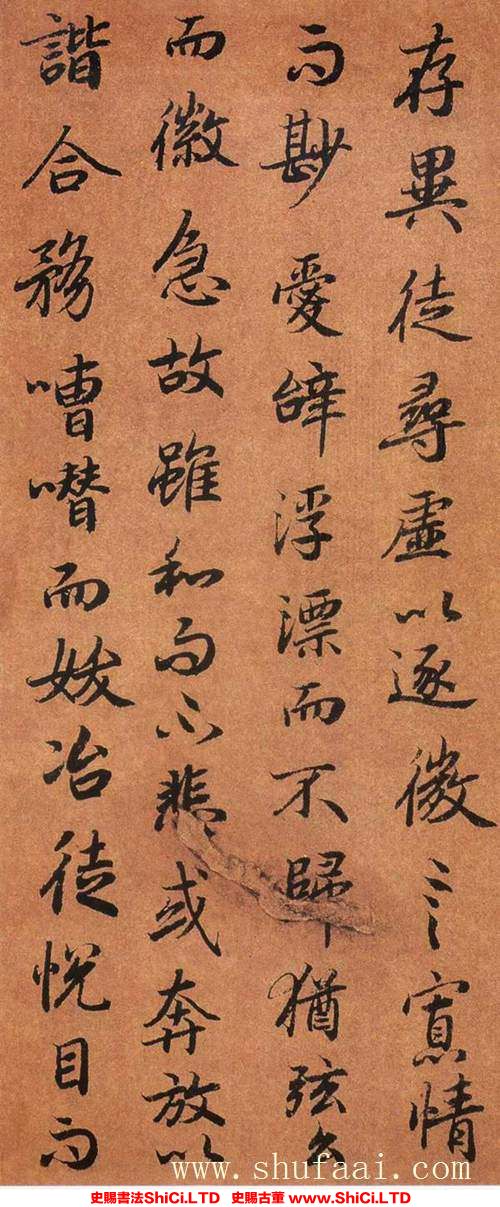 存異徒尋虛以逐微言寡情
而尠愛辭浮漂而不歸猶弦么
而徽急故雖和而不悲或奔放以
諧合務嘈噆而妖冶徒悅目而
www.shufaai.com
史賜書法ShiCi.LTD 史賜古董 www.ShiCi.LTD